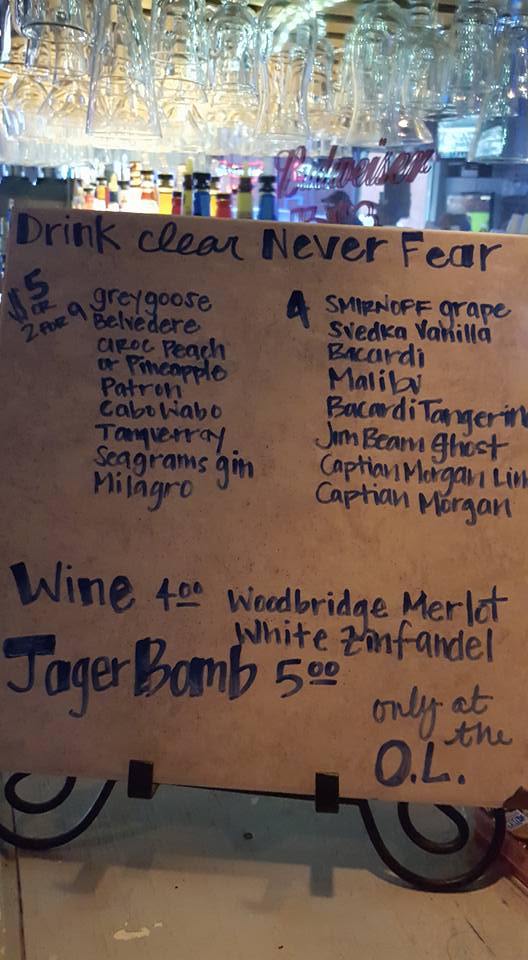 Budweiser
Drink clear Never Fear
$5
OR
2 FOR 9
greygoose
Belvedere
ciroc Peach
or Pineapple
Patron
Cabo Wabo
Tanquerray
Seagrams gin
Milagro
4
SMIRNOFF grape
Svedka Vanilla
Bacardi
Malibu
Bacardi Tangerin
Jim Beam ghost
Captian Morgan Lim
Captian Morgan
Wine 4.00 Woodbridge Merlot
White Zinfandel
Jager Bomb 5.00
only at
the
O.L.